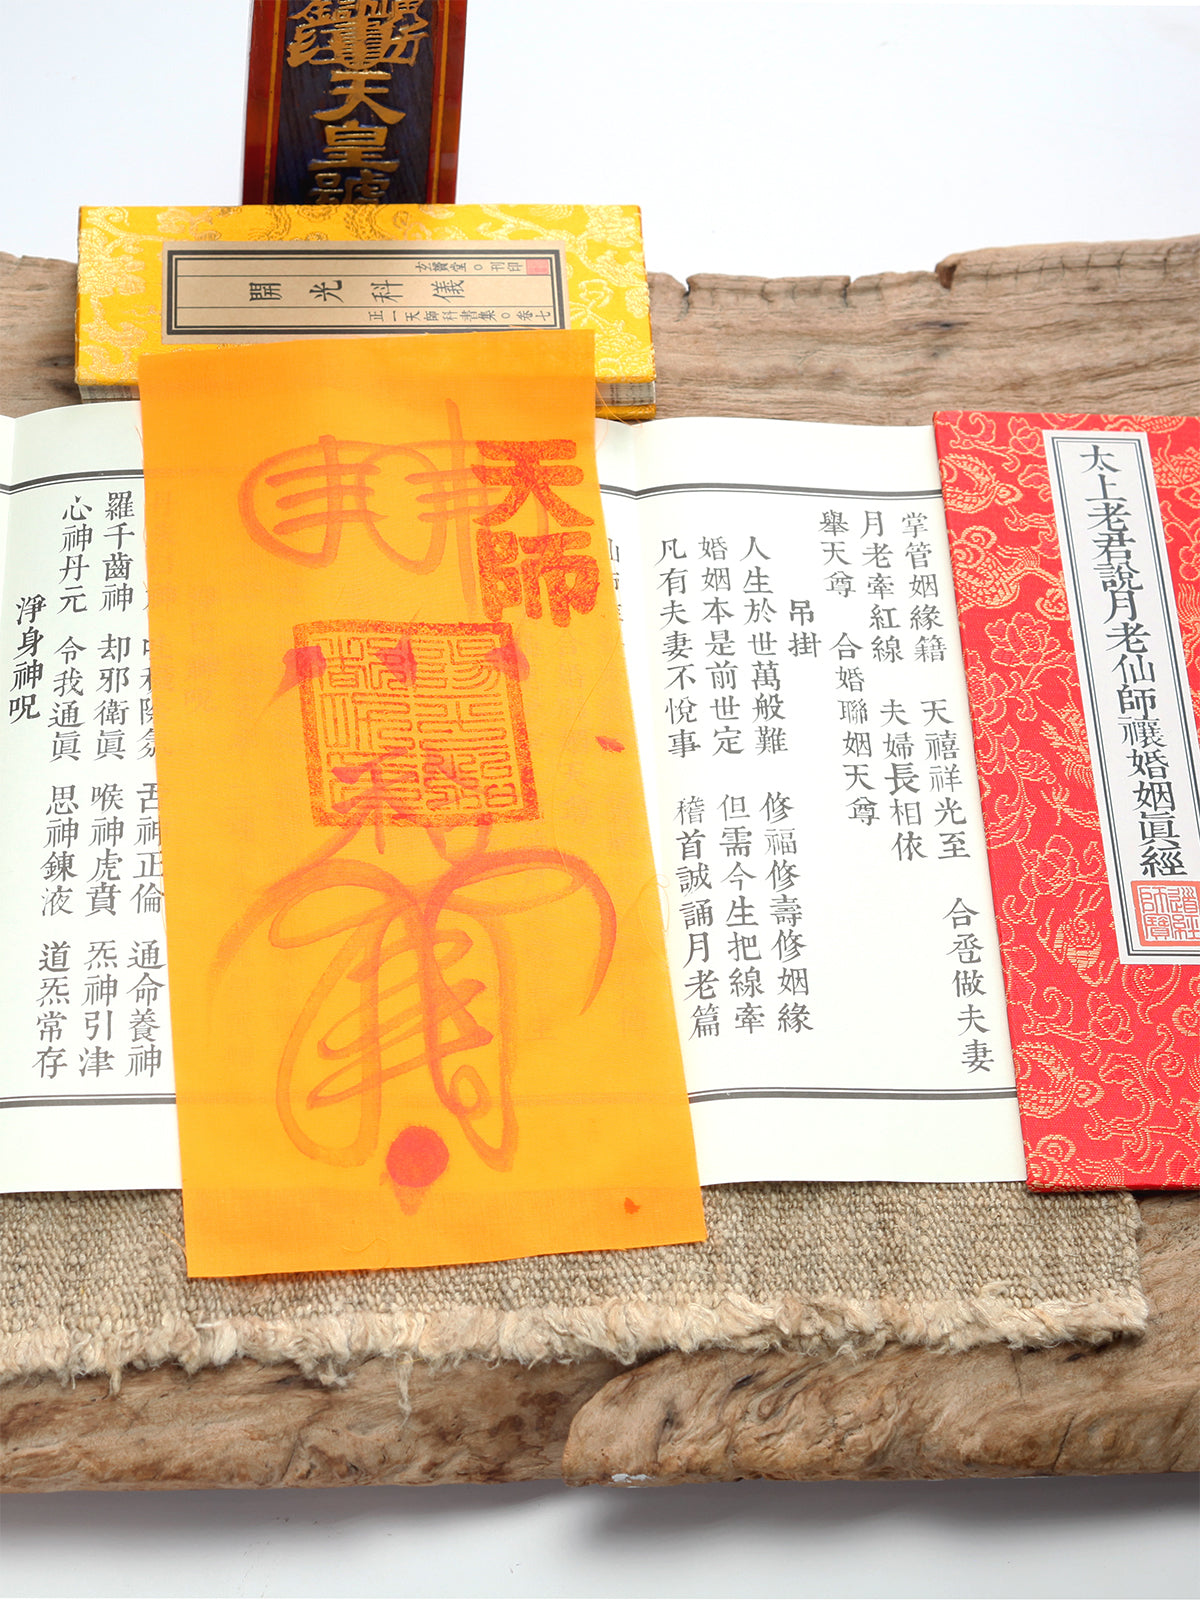 天皇號
玄寶堂○刊印
開光科儀
正一天師科書集○卷七
天師
太上老君說月老仙師禳婚姻真經
道經師寶
掌管姻緣籍 天禧祥光至 合巹做夫妻
月老牽紅線 夫婦長相依
舉天尊 合婚聯姻天尊
吊掛
人生於世萬般難 修福修壽修姻緣
婚姻本是前世定 但需今生把線牽
凡有夫妻不悅事 稽首誠誦月老篇
舌神正倫 通命養神
羅千齒神 却邪衛眞 喉神虎賁 炁神引津
心神丹元 令我通眞 思神鍊液 道炁常存
淨身神呪